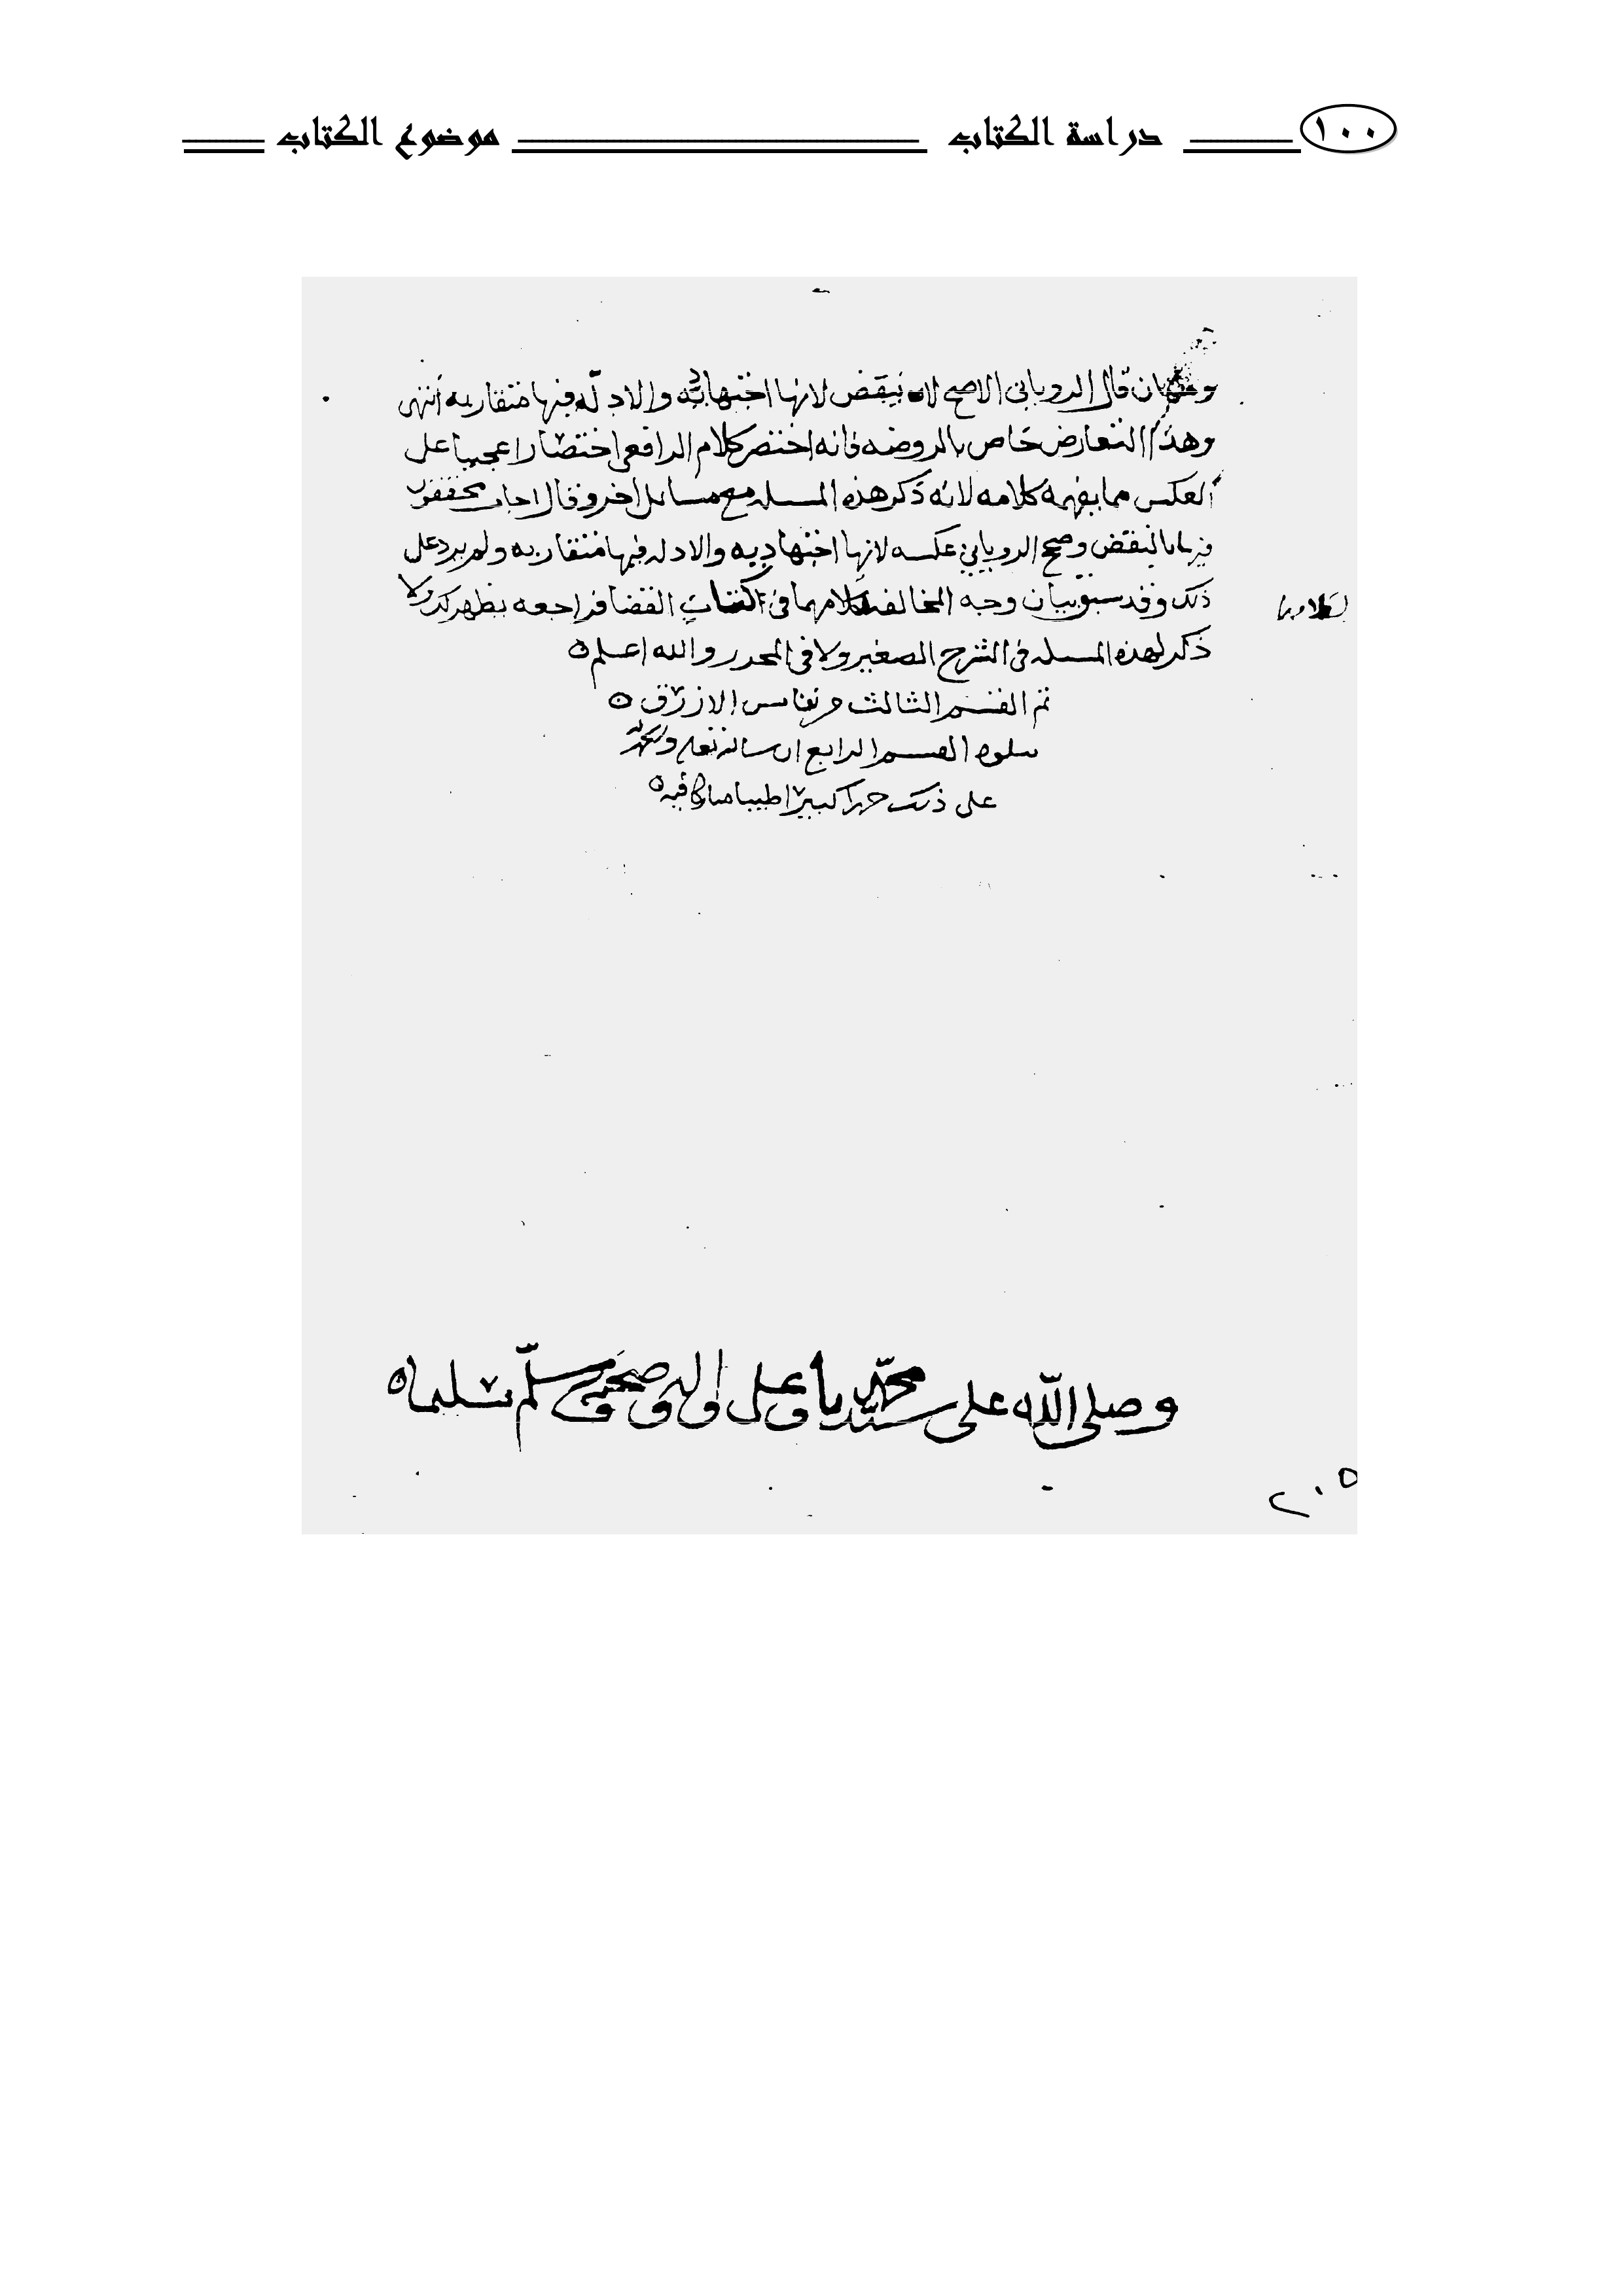 ١٠٠ دراسة الكتاب موضوع الكتاب
قال الروياني الاصح لا ينقض لانها اجتهاديه والادله فيها متقاربه انتهى
وهذا التعارض خاص بالروضه فانه اختصر كلام الرافعي اختصارا عجيبا على
العكس مما يفهمه كلامه لانه ذكر هذه المسله مع مسائل اخر وقال اجاب محققون
فيها بالنقض وصحح الروياني عكسه لانها اجتهاديه والادله فيها متقاربه ولم يرد على
ذلك وقد سبق بيان وجه المخالفه لكلامهما في كتاب القضا فراجعه يظهر لك ولا
ذكر لهذه المسله في الشرح الصغير ولا في المحرر والله اعلم
تم القسم الثالث من نفايس الازرق
يتلوه القسم الرابع ان شا الله تعلى ولله الحمد
على ذلك حمدا كثيرا طيبا مباركا فيه
وصلى الله على سيدنا محمد وعلى اله وصحبه وسلم تسليما
٢٠٥